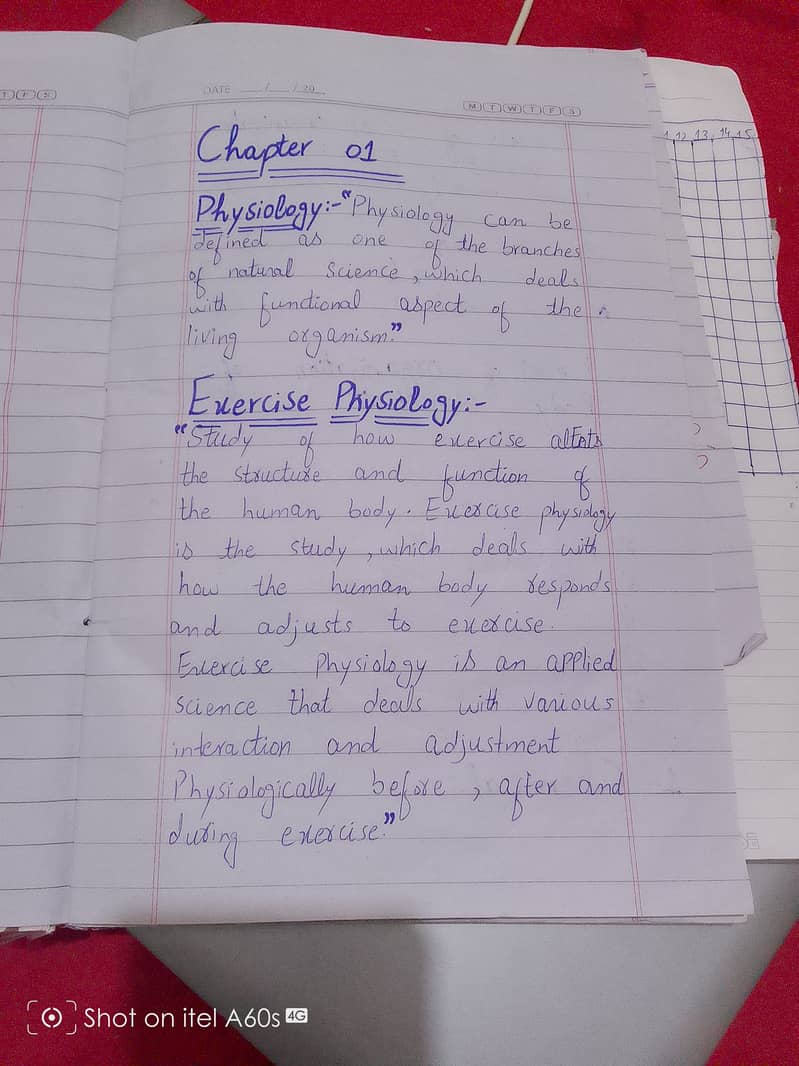 T F S
DATE __/__/20__
M T W T F S
Chapter 01
Physiology:- "Physiology can be
defined as one of the branches
of natural Science, which deals
with functional aspect of the
living organism."
Exercise Physiology:-
"Study of how exercise
the structure and function of
the human body. Exercise physiology
is the study, which deals with
how the human body responds
and adjusts to exercise.
Exercise Physiology is an applied
science that deals with various
interaction and adjustment
Physiologically before, after and
during exercise."
12 13 14 15
Shot on itel A60s 4G